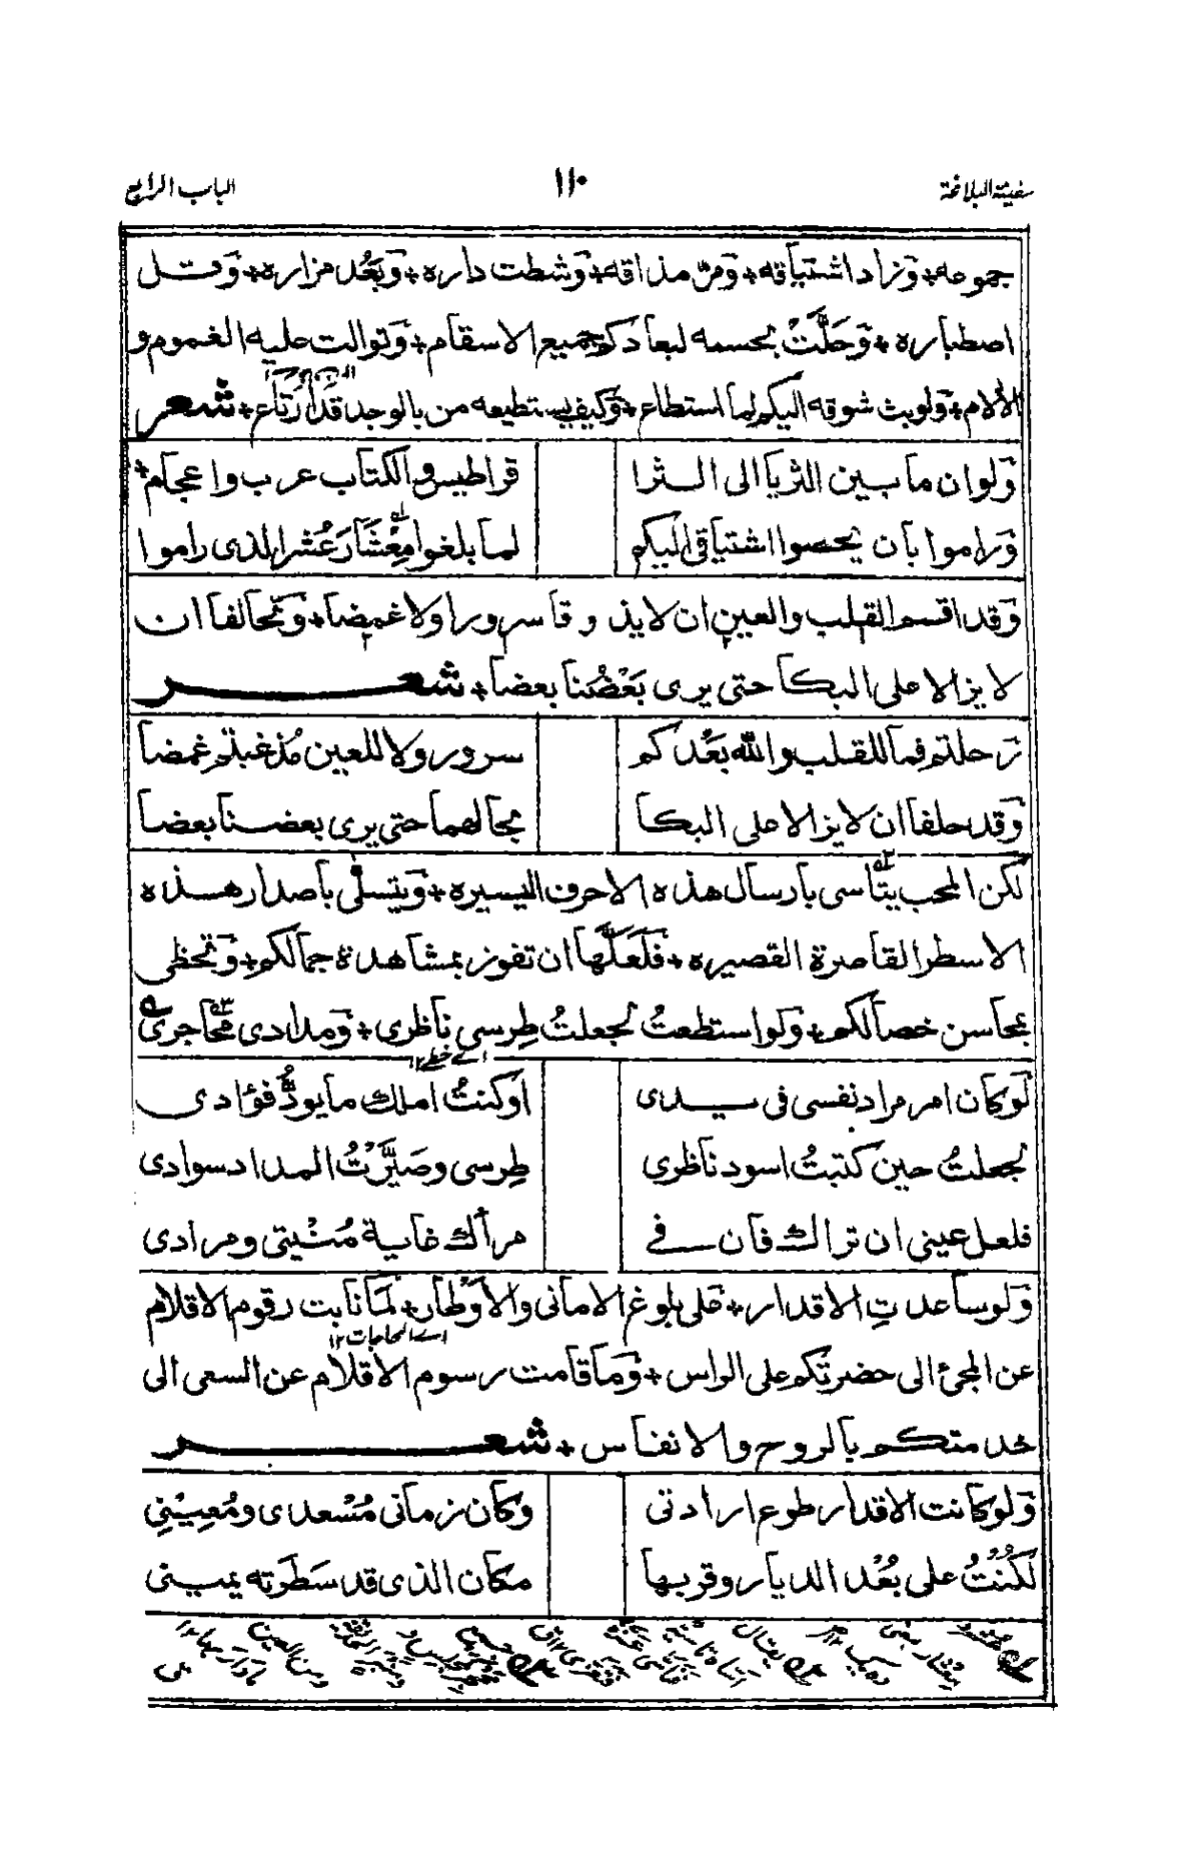 سفينة البلاغة
١١٠
الباب الرابع
جموعه + وَزاد اشتياقه + وَمرّ مذاقه + وَشطت داره + وَبَعُد مزاره + وَقل
اصطباره + وَحَلَّتْ بجسمه لبعادكم جميع الاسقام + وَتوالت عليه الغموم و
الألام + وَلوبث شوقه اليكم لما استطاع + وَكيف يستطيعه من بالوجد قَد ارتَاع + شعر
وَلوان ما بين الثريا الى الثرا
قراطيس والكتاب عرب واعجام +
وَراموا بأن يحصوا اشتياقي اليكم
لما بلغوا مِعْشَارَ عُشر الذى راموا
وَقد اقسم القلب والعين ان لايذوقا سرورا ولا غمضا + وَتحالفا ان
لا يزالا على البكا حتى يرى بَعْضُنا بعضا + شعر
رَحلتم فما للقلب والله بعدكم
سرور ولا للعين مُذ غبتم غمضا
وَقد حلفا ان لا يزالا على البكا
بحالهما حتى يرى بعضنا بعضا
لكن المحب يتأسى بارسال هذه الاحرف اليسيره + وَيتسلّى باصدار هذه
الاسطر القاصرة القصيره + فَلَعَلَّها ان تفوز بمشاهدة جمالكم + وَتحظى
بمحاسن خصالكم + وَلو استطعتُ لجعلتُ طِرسى ناظرى + وَمدادى محاجرى
اے خطے ١٢
لوكان امر مراد نفسى فى يدى
اوكنتُ املك ما يودُّ فؤادى
لجعلتُ حين كتبتُ اسود ناظرى
طِرسى وصَيَّرْتُ المداد سوادى
فلعل عينى ان تراك فان فے
مرأك غاية مُنْيتى ومرادى
وَلو ساعدتِ الاقدار + على بلوغ الامانى والأوْطار + لما نابت رقوم الاقلام
اے الحاجات ١٢
عن المجئ الى حضرتكم على الراس + وَما قامت رسوم الاقلام عن السعى الى
خدمتكم بالروح والانفاس + شعر
وَلوكانت الاقدار طوع ارادتى
وكان زمانى مُسْعدى ومُعِيْنِي
لكُنْتُ على بُعْد الديار وقربها
مكان الذى قد سَطَرَته يمينى